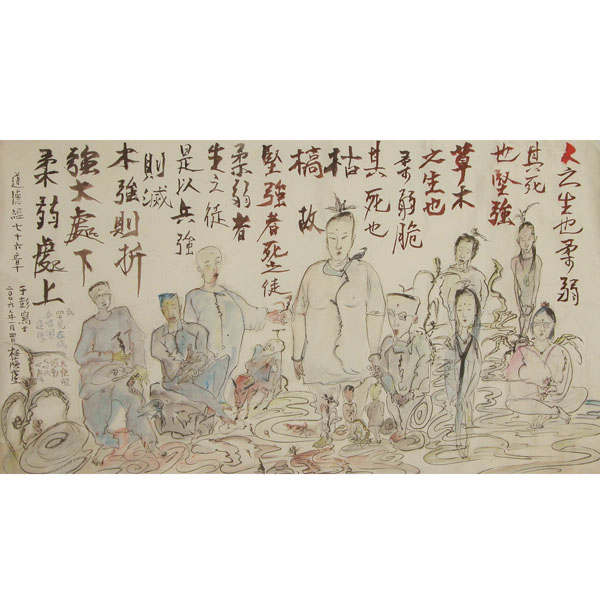 人之生也柔弱
其死
也堅強
草木
之生也
柔弱脆
其死也
枯
槁故
堅強者死之徒
柔弱者
生之徒
是以兵強
則滅
木強則折
強大處下
柔弱處上
道德經七十六章
于彭寫
二〇〇六年一月四日